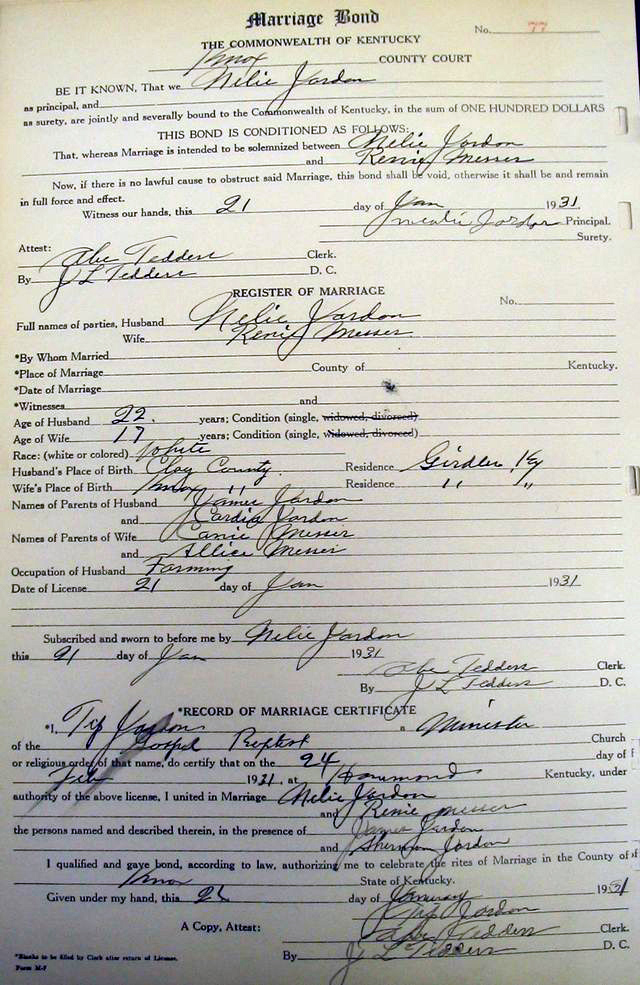 Marriage Bond
No. 77
THE COMMONWEALTH OF KENTUCKY
Knox COUNTY COURT
BE IT KNOWN, That we Nelie Jordon
as principal, and
as surety, are jointly and severally bound to the Commonwealth of Kentucky, in the sum of ONE HUNDRED DOLLARS
THIS BOND IS CONDITIONED AS FOLLOWS:
That, whereas Marriage is intended to be solemnized between Nelie Jordon
and Renie Messer
Now, if there is no lawful cause to obstruct said Marriage, this bond shall be void, otherwise it shall be and remain
in full force and effect.
Witness our hands, this 21 day of Jan 1931
Jordon Principal.
Surety.
Attest:
Abe Tedders Clerk.
By J L Tedders D. C.
REGISTER OF MARRIAGE
No.
Full names of parties, Husband Nelie Jordon
Wife Renie Messer
*By Whom Married
*Place of Marriage County of Kentucky.
*Date of Marriage
*Witnesses and
Age of Husband 22. years; Condition (single, widowed, divorced)
Age of Wife 17 years; Condition (single, widowed, divorced)
Race: (white or colored) White
Husband's Place of Birth Clay County. Residence Girdler Ky
Wife's Place of Birth Knox " Residence " "
Names of Parents of Husband James Jordon
and Cardia Jordon
Names of Parents of Wife Canie Messer
and Allice Messer
Occupation of Husband Farming
Date of License 21 day of Jan 1931
Subscribed and sworn to before me by Nelie Jordon
this 21 day of Jan 1931
Abe Tedders Clerk.
By J L Tedders D. C.
*RECORD OF MARRIAGE CERTIFICATE
*I, Tip Jordon a Minister
of the Gospel Baptist Church
or religious order of that name, do certify that on the 24 day of
Feb 1931, at Hammond Kentucky, under
authority of the above license, I united in Marriage Nelie Jordon
and Renie Messer
the persons named and described therein, in the presence of James Jordon
and Sherman Jordon
I qualified and gave bond, according to law, authorizing me to celebrate the rites of Marriage in the County of
Knox State of Kentucky.
Given under my hand, this day of January 1931
Tip Jordon
A Copy, Attest: Abe Tedders Clerk.
By J L Tedders D. C.
*Blanks to be filled by Clerk after return of License.
Form M-F